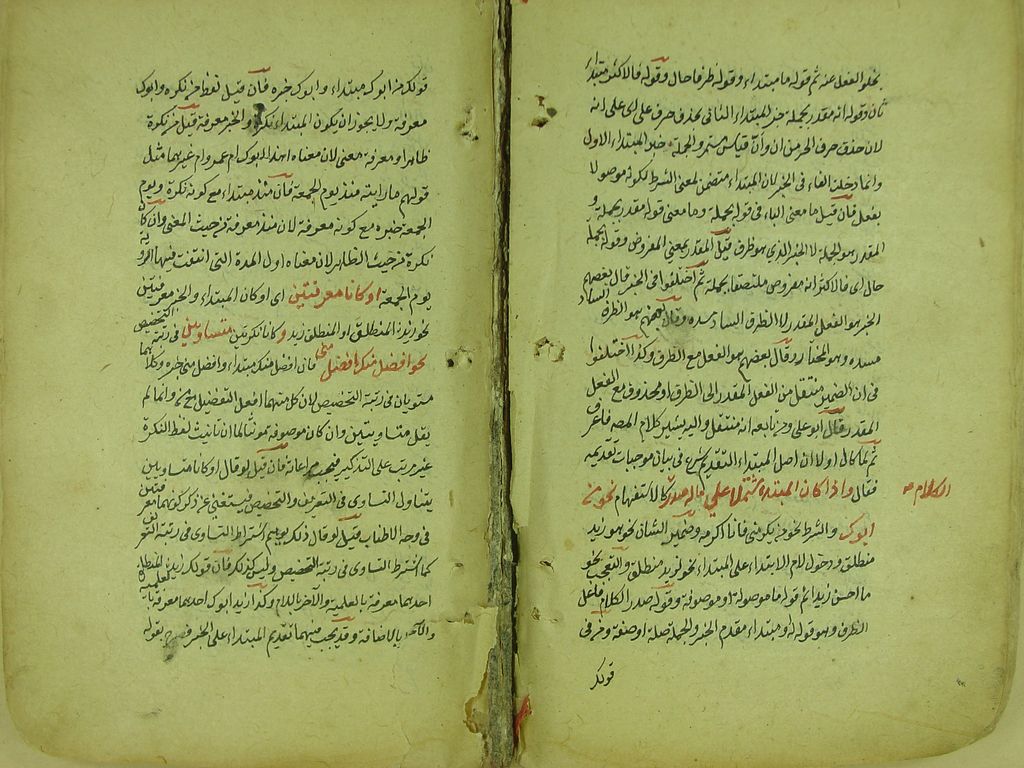 بخلو الفعل عنه ثم قوله ما مبتداء وقوله ظرفا حال وقوله فالاكثر مبتداء
ثان وقوله انه مقدر بجملة خبر المبتداء الثانى بحذف حرف على اى على انه
لان حذف حرف الجر من ان وأنّ قياس مستمر والجملة خبر المبتداء الاول
وانما دخلت الفاء فى الخبر لان المبتداء متضمن لمعنى الشرط لكونه موصولا
بفعل فان قيل ما معنى الباء فى قوله بجملة وما معنى قوله مقدر بجملة و
المقدر هو الجملة لا الخبر الذى هو ظرف قيل المقدر بمعنى المفروض وقوله بجملة
حال اى فالاكثر انه مفروض ملتصقا بجملة ثم اختلفوا فى الخبر قال بعضهم
الخبر هو الفعل المقدر لا الظرف الساد مسده وقال بعضهم هو الظرف الساد
مسده وهو المختار وقال بعضهم هو الفعل مع الظرف وكذا اختلفوا
فى ان الضمير منتقل من الفعل المقدر الى الظرف او محذوف مع الفعل
المقدر قال ابو على ومن تابعه انه منتقل واليه يشير كلام المصه فاعرف
ثم لما كان اولا ان اصل المبتداء التقديم شرع فى بيان موجبات تقديمه
فقال واذا كان المبتداء مشتملا على ماله صدر الكلام كالاستفهام نحو من
ابوك والشرط نحو من يكرمنى فانا اكرمه وضمير الشان نحو هو زيد
منطلق ودخول لام الابتداء على المبتداء نحو لزيد منطلق والتعجب نحو
ما احسن زيدا ثم قوله ما موصولة او موصوفة وقوله صدر الكلام فاعل
الظرف وهو قوله له او مبتداء مقدم الخبر والجملة صلة او صفة ومن فى
قولك
قولك من ابوك مبتداء وابوك خبره فان قيل لفظ من نكرة وابوك
معرفة ولا يجوز ان يكون المبتداء نكرة والخبر معرفة قيل من نكرة
ظاهرا ومعرفة معنى لان معناه اهذا ابوك ام عمرو ام غيرهما مثل
قولهم ما رايته منذ يوم الجمعة فان منذ مبتداء مع كونه نكرة ويوم
الجمعة خبره مع كونه معرفة لان منذ معرفة من حيث المعنى وان كان
نكرة من حيث الظاهر لان معناه اول المدة التى انتفت فيها الروية
يوم الجمعة او كانا معرفتين اى او كان المبتداء والخبر معرفتين
نحو زيد المنطلق او المنطلق زيد وكانا نكرتين متساويين فى رتبة التخصيص
نحو افضل منك افضل منى فان افضل منك مبتداء وافضل منى خبره وكلاهما
مستويان فى رتبة التخصيص لان كل منهما افعل التفضيل مع من وانما لم
يقل متساويتين وان كان موصوفه مونثا لما ان تانيث لفظ النكرة
غير مرتب على التذكير فيجب مراعاته فان قيل لو قال او كانا متساويين
يتناول التساوى فى التعريف والتخصيص فيستغنى عن ذكر كونهما معرفتين
فى وجه الاطناب قيل لو قال ذلك يوهم اشتراط التساوى فى رتبة التعريف
كما اشترط التساوى فى رتبة التخصيص وليس كذلك فان قولك زيد المنطلق
احدهما معرفة بالعلمية والآخر باللام وكذا زيد ابوك احدهما معرفة بالعلمية
والآخر بالاضافة وقد يجب منهما تقديم المبتداء على الخبر فصرح بقوله